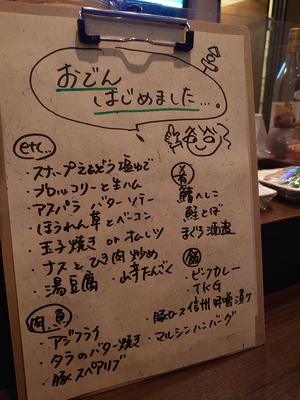 おでん
はじめました…。
etc…
・スナップえんどう塩ゆで
・ブロッコリーと生ハム
・アスパラ バターソテー
・ほうれん草とベーコン
・玉子焼き or オムレツ
・ナスとひき肉炒め
・湯豆腐 ・山芋たんざく
肴
鯖へしこ
鮭とば
まぐろ酒盗
飯
・ビーフカレー
・TKG
肉 魚
・アジフライ
・タラのバター焼き
・豚スペアリブ
・豚ロース信州味噌漬ケ
・マルシンハンバーグ